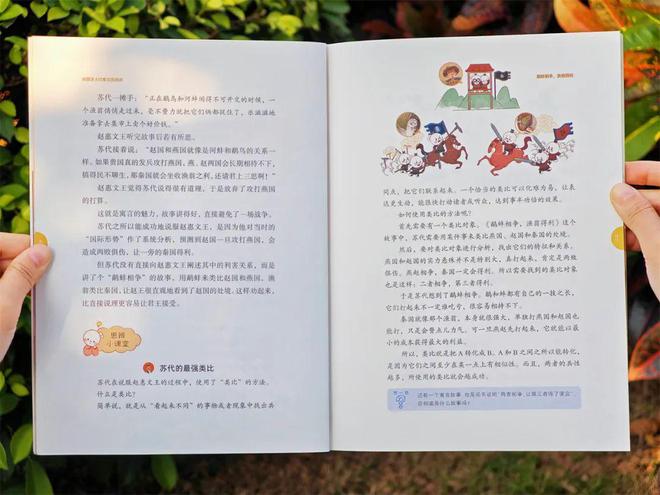 苏代一摊手：“正在鹬鸟和河蚌闹得不可开交的时候，一
个渔翁悄悄走过来，毫不费力就把它们俩都捉住了，乐滋滋地
准备拿去集市上卖个好价钱。”
赵惠文王听完故事后若有所思。
苏代接着说：“赵国和燕国就像是河蚌和鹬鸟的关系一
样。如果贵国真的发兵攻打燕国，燕、赵两国会长期相持不下，
搞得民不聊生，那秦国就会坐收渔翁之利，还请君上三思啊！”
赵惠文王觉得苏代说得很有道理，于是放弃了攻打燕国
的打算。
这就是寓言的魅力，故事讲得好，直接避免了一场战争。
苏代之所以能成功地说服赵惠文王，是因为他对当时的
“国际形势”作了系统分析，预测到赵国一旦攻打燕国，会
造成两败俱伤，让一旁的秦国得利。
但苏代没有直接向赵惠文王阐述其中的利害关系，而是
讲了个“鹬蚌相争”的故事，用鹬蚌来类比赵国和燕国、渔
翁类比秦国，让赵王很直观地看到了赵国的处境。这样劝起来，
比直接说理更容易让君王接受。
思辨
小课堂
苏代的最强类比
苏代在说服赵惠文王的过程中，使用了“类比”的方法。
什么是类比？
简单说，就是从“看起来不同”的事物或者现象中找出共
鹬蚌相争，渔翁得利
同点，把它们联系起来。一个恰当的类比可以化难为易，让表
达更生动，能很快打动读者或听众，达到事半功倍的效果。
如何使用类比的方法呢？
首先需要有一个类比对象。《鹬蚌相争，渔翁得利》这个
故事中，苏代需要用某件事来类比燕国、赵国和秦国的处境。
然后，要对类比对象进行分析，找出它们的特征和关系。
燕国和赵国的实力悬殊并不是特别大，真打起来，肯定是两败
俱伤。燕赵相争，秦国一定会得利。所以需要找到的类比对象
也是这样：二者相争，第三者得利。
于是苏代想到了鹬蚌相争。鹬和蚌都有自己的一技之长，
它们打起来不一定谁吃亏，很容易相持不下。
秦国就像那个渔翁，本身就很强大，单独打燕国和赵国也
能打，只是会费点儿力气，可一旦燕赵先打起来，它就能以最
小的成本获得最大的利益。
所以，类比就是把 A 转化成 B。A 和 B 之间之所以能转化，
是因为它们之间至少在某一点上有相似性。而且，两者的共性
越多，所使用的类比就会越成功。
想一想
还有一个寓言故事，也是说书证明“两者相争，让第三者得了便宜”，
你知道是什么故事吗？